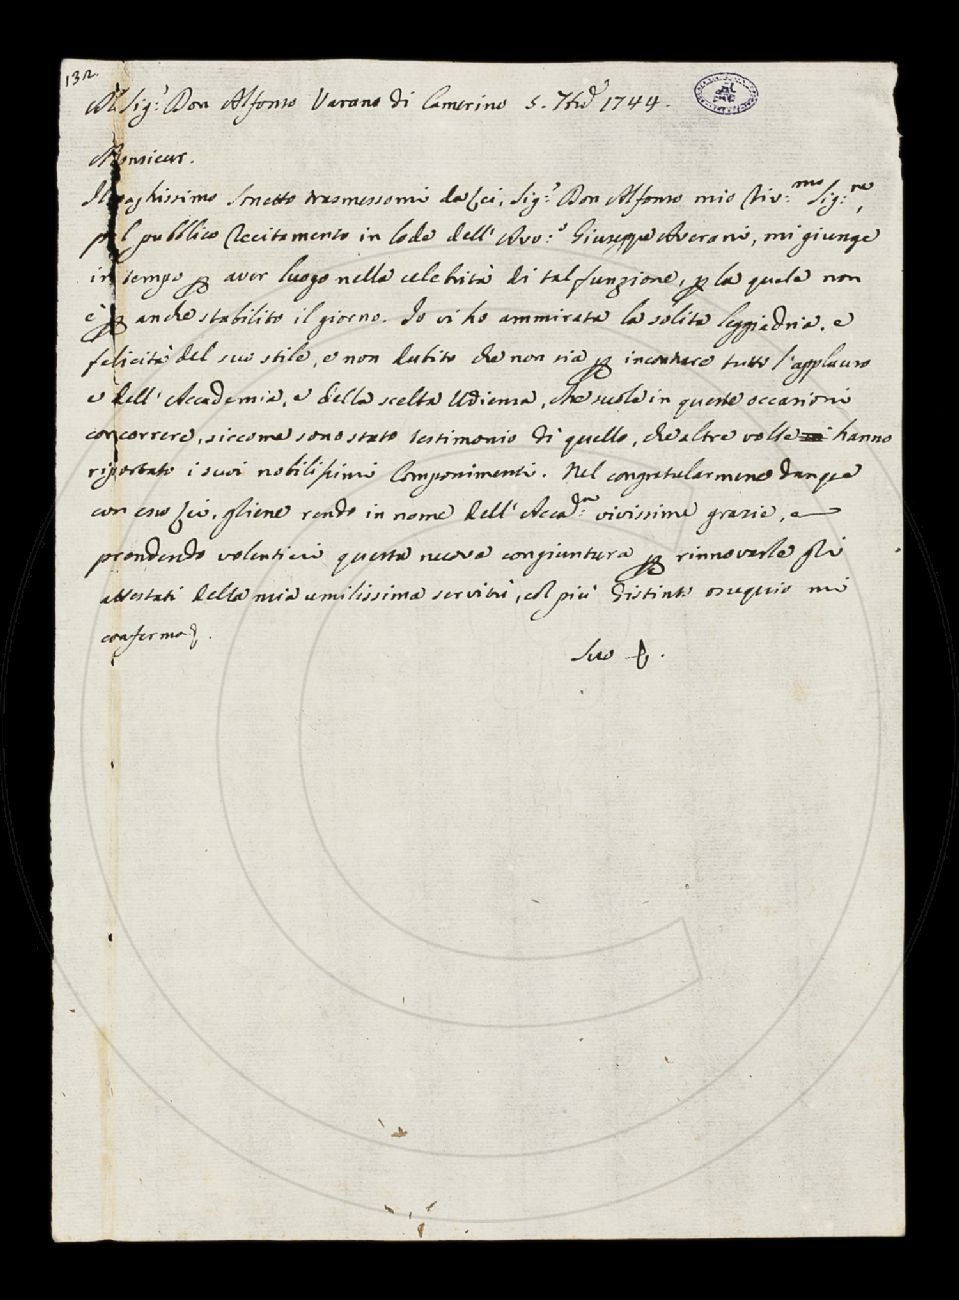 132.
Al Sig.r Don Alfonso Varano di Camerino 5. 7bre 1744.
Monsieur.
Il vaghissimo Sonetto trasmessomi da Lei, Sig.r Don Alfonso mio Riv.mo Sig.re,
p l pubblico Recitamento in lode dell' Avv.o Giuseppe Averani, mi giunge
in tempo p aver luogo nella celebrità di tal funzione, p la quale non
è p anche stabilito il giorno. Io vi ho ammirata la solita leggiadria, e
felicità del suo stile, e non dubito che non sia p incontrare tutto l'applauso
e dell' Accademia, e della scelta Udienza, che suole in queste occasioni
concorrere, siccome sono stato testimonio di quello, che altre volte hanno
riportato i suoi nobilissimi Componimenti. Nel congratularmene dunque
con esso Lei, gliene rendo in nome dell' Accad.a vivissime grazie, e
prendendo volentieri questa nuova congiuntura p rinnovarle gli
attestati della mia umilissima servitù, col più distinto ossequio mi
confermo
Suo